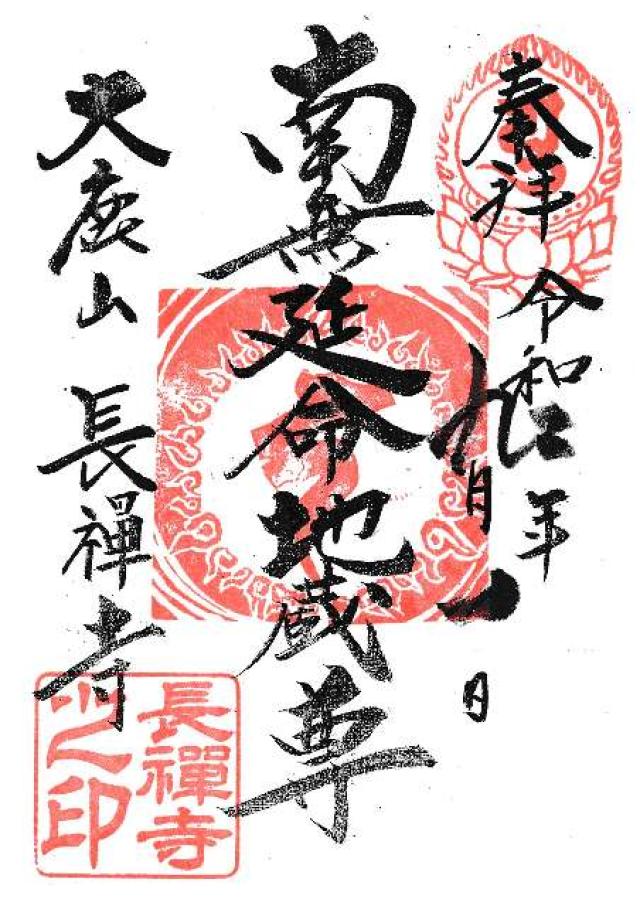 奉拝 令和 年
九月一日
南無延命地蔵尊
大鹿山 長禪寺
長禪寺
之印